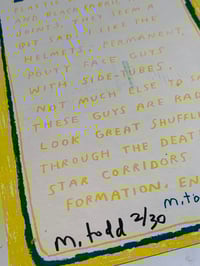 AND BLACK FABRIC
JOINTS. THEY SEEM A
BIT SAD. I LIKE THE
HELMETS. PERMANENT,
POUTY FACE GUYS
WITH SIDE-TUBES.
NOT MUCH ELSE TO SA
THESE GUYS ARE RAD
LOOK GREAT SHUFFL
THROUGH THE DEAT
STAR CORRIDORS
FORMATION. EN
m.to
m.todd 2/30